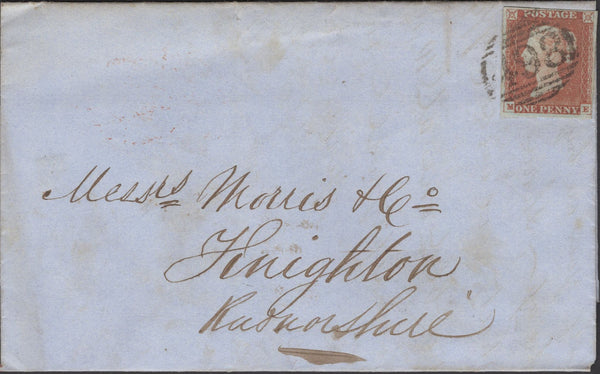 POSTAGE
ONE PENNY
M E
Messrs Morris & Co
Knighton
Radnorshire